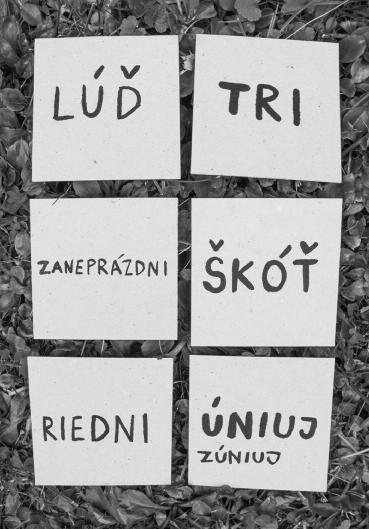 LÚĎ
TRI
ZANEPRÁZDNI
ŠKÓŤ
RIEDNI
ÚNIUJ
ZÚNIUJ